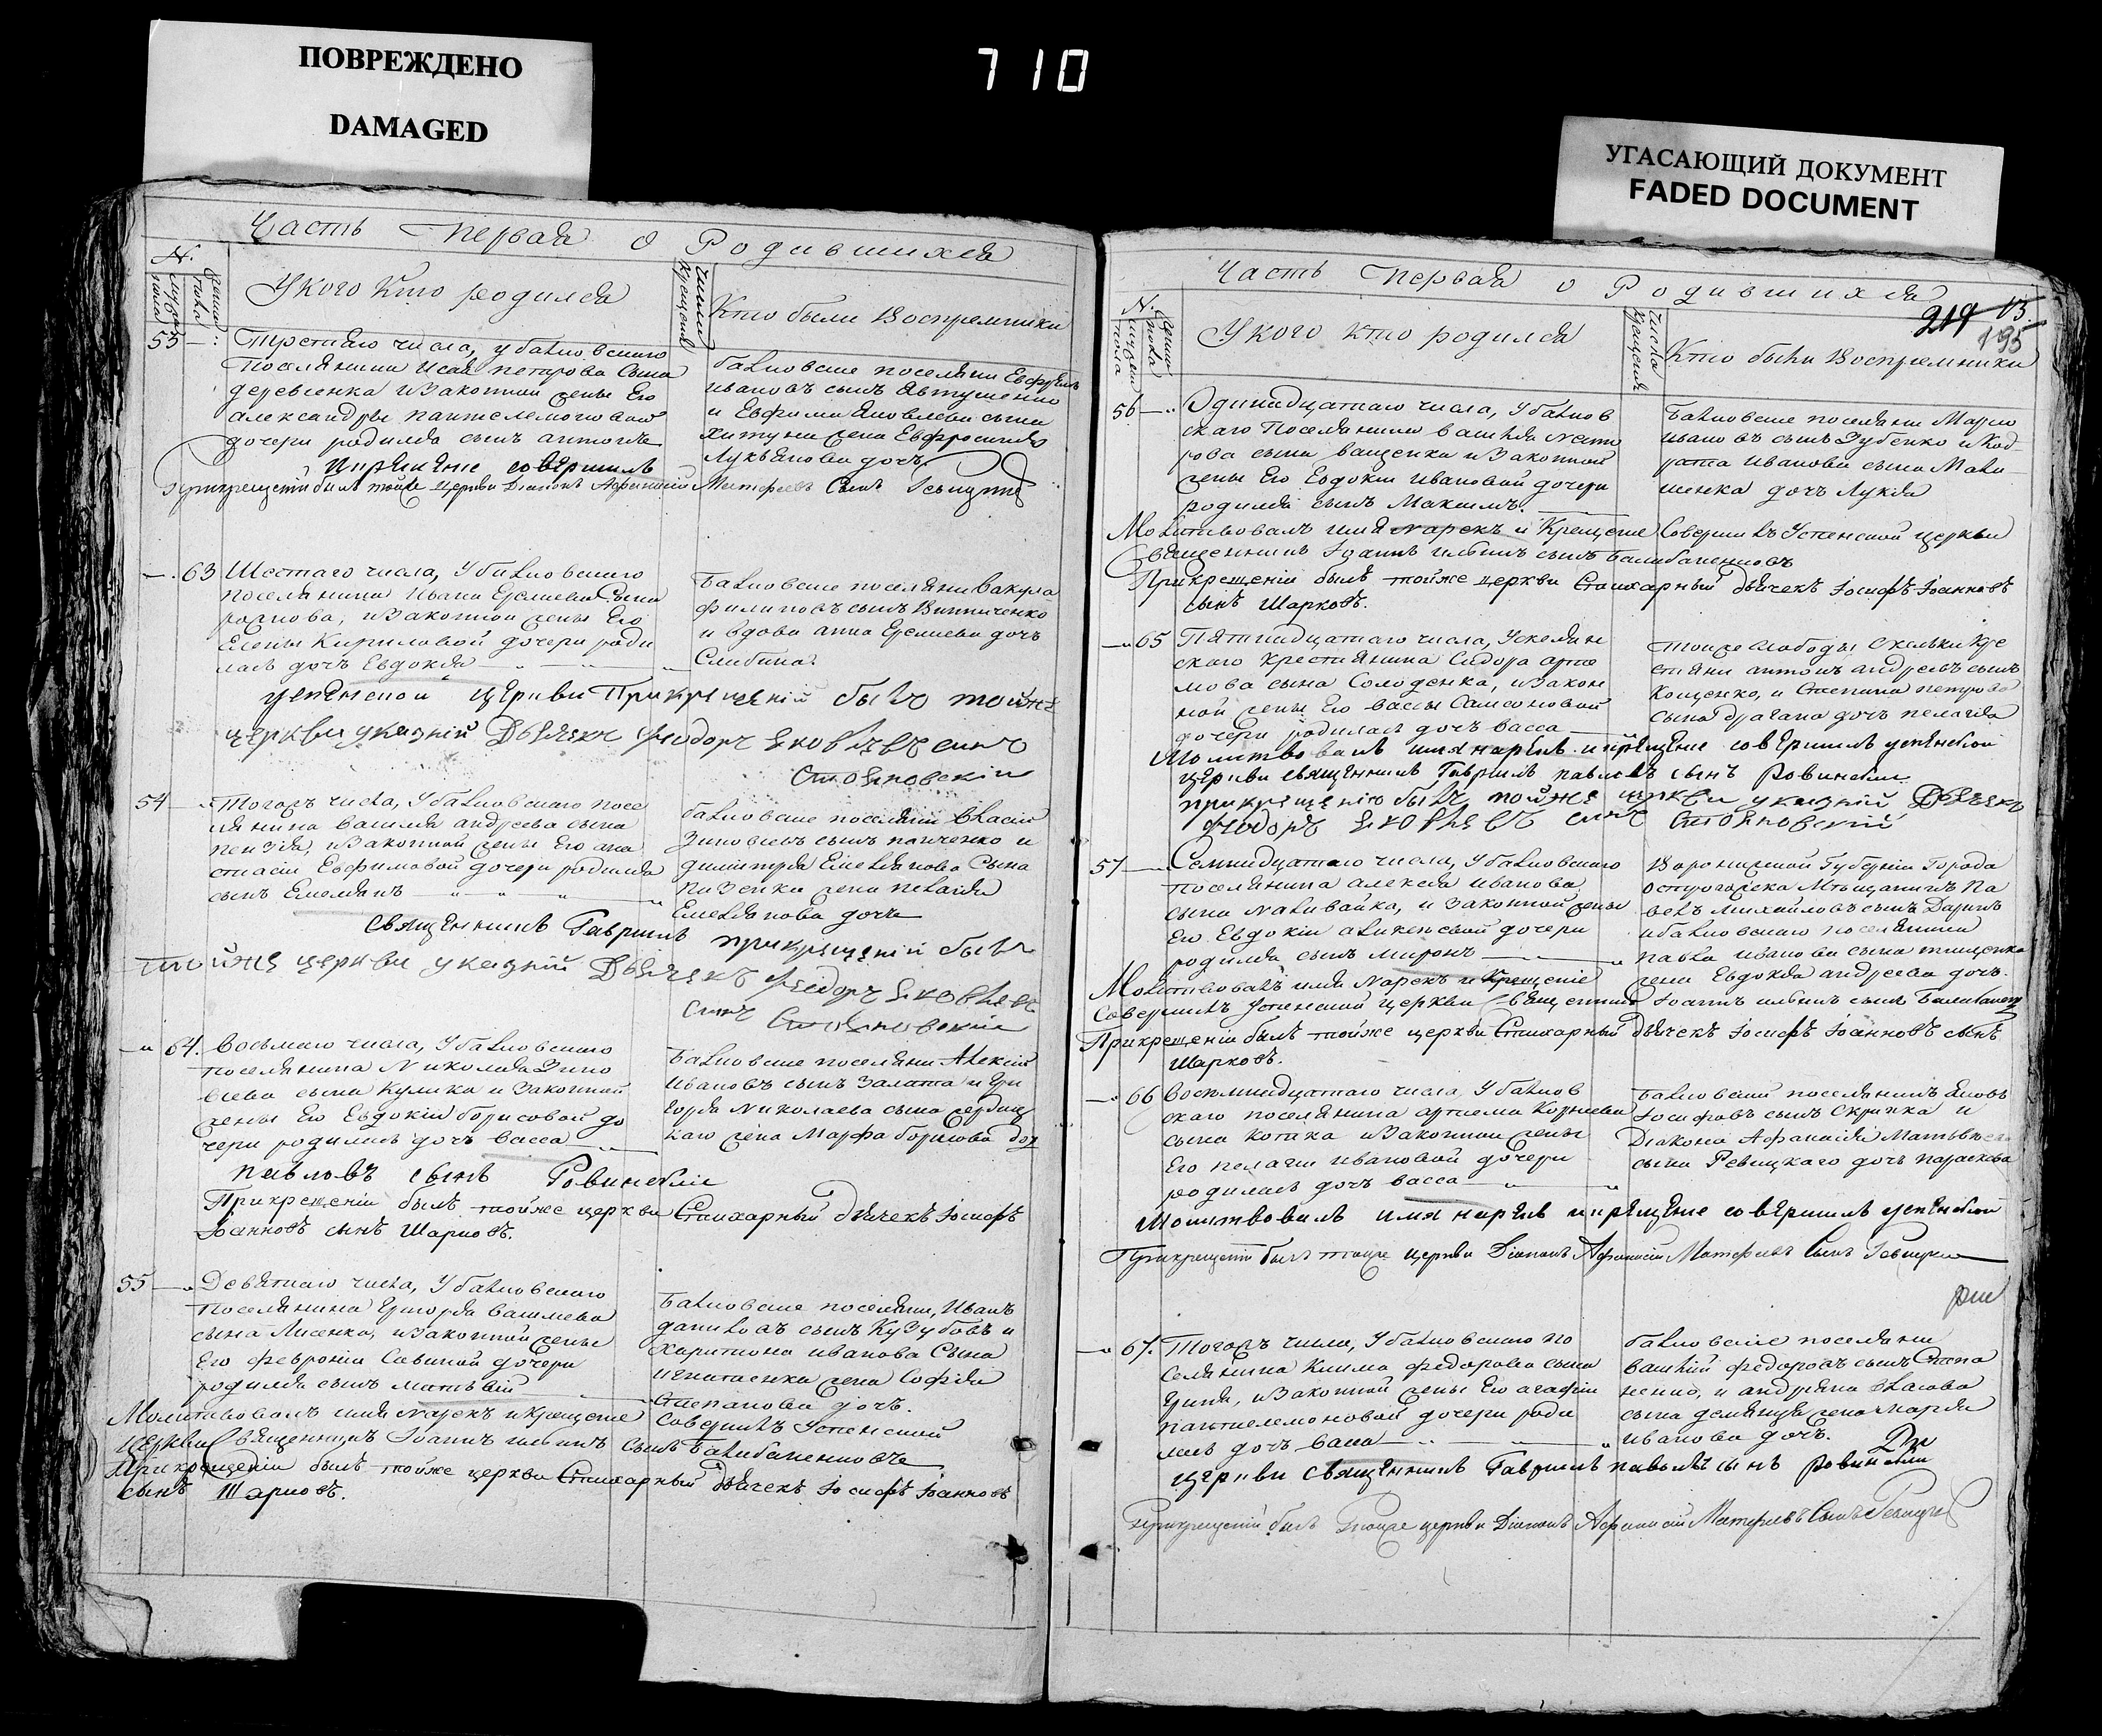 ПОВРЕЖДЕНО
DAMAGED
710
УГАСАЮЩИЙ ДОКУМЕНТ
FADED DOCUMENT
Часть Первая о Родившихся
№.
У кого кто родился
Кто были Восприемники
55
Третяго числа, у балковскаго
поселянина Исая петрова сына
деревленка и законной жены Его
александры пантелемоновой
дочери родился сынъ антонъ
балковские поселяни
ивановъ сынъ Явтушенко
и Евфима Яковлева сына
жена Евфросиния
Лукьянова дочь
Крещение совершилъ
При крещении былъ тойже Церкви Діаконъ Афанасий Матфеевъ Сынъ Ревицкий
63
Шестаго числа, У балковскаго
поселянина Ивана сына
и законной жены Его
Елены Кириловой дочери роди
лась дочь Евдокия
Балковские поселяни Вакула
филиповъ сынъ Винниченко
и вдова анна дочь
успенской церкви При крещений былъ тойже
церкви указній Дьячекъ Феодоръ Яковлевъ синъ
Стояновский
54
Тогожъ числа, У балковскаго посе
лянина василия андреева сына
и законной жены Его ана
стасии Евфимовой дочери родился
сынъ Емелянъ
балковские поселяни Власий
Зиновиевъ сынъ панченко и
димитрия Емелянова Сына
жена пелагия
Емелянова дочь
священникъ Гавриилъ при крещений былъ
тойже церкви указній Дьячекъ Феодоръ Яковлевъ
синъ Стояновский
64.
Восьмаго числа, У балковскаго
поселянина Николая Зино
виева сына Кулика и Законной
жены Его Евдокии борисовой до
чери родилась дочь васса
Балковские поселяни Алексий
Ивановъ сынъ Залата и Гри
гория Николаева сына
жена Марфа борисова доч
павловъ сынъ Ровинский
При крещении былъ тойже церкви Стихарный дьячекъ Іосифъ
Іоанновъ сынъ Шарковъ.
55
Девятаго числа, У балковскаго
поселянина Григория василиева
сына Лисенка, и законной жены
Его феврониі Савиной дочери
родился сынъ матвий
Балковские поселяни, Иванъ
даниловъ сынъ Кузубовъ и
харитона иванова Сына
игнатенка жена София
Степанова дочь.
Молитвовалъ имя Нарекъ и Крещение Совершилъ Успенской
Церкви Священникъ Іоаннъ ильинъ сынъ Балабаненковъ
При крещении былъ тойже церкви Стихарный дьячекъ Іосифъ Іоанновъ
сынъ Шарковъ.
Часть Первая о Родившихся
219 13.
195
№.
У кого кто родился
Кто были Восприемники
56
Одинадцатаго числа, У балков
скаго Поселянина василия
сына ващенка и Законной
жены Его Евдокии Ивановой дочери
родился сынъ Максимъ.
Балковские поселяни Марко
ивановъ сынъ Зубенко и Код
рата Иванова сына
дочь Лукия
Молитвовалъ имя Нарекъ и Крещение Совершилъ Успенской церкви
Священникъ Іоаннъ ильинъ сынъ Балабаненковъ
При крещении былъ тойже церкви Стихарный дьячекъ Іосифъ Іоанновъ
сынъ Шарковъ.
65
Пятнадцатаго числа,
скаго крестянина Сидора арте
мова сына Солоденка, и Закон
ной жены Его вассы Самсоновой
дочери родилась дочь васса
тойже слободы кре
стяни антонъ андреевъ сынъ
Кощенко, и Степана петрова
сына драгана дочь пелагия
Молитвовалъ имя нарекъ и крещение совершилъ успенской
церкви священникъ Гавриилъ павловъ сынъ Ровинский
при крещению былъ тойже церкви указній Дьячекъ
Феодоръ Яковлевъ синъ Стояновский
57
Семнадцатаго числа, У балковскаго
поселянина алексия иванова
сына Наливайка, и Законной жены
Его Евдокии дочери
родился сынъ миронъ
Воронежской Губерніи Города
острогожска Мещанинъ Па
велъ михайловъ сынъ
и балковскаго поселянина
павла иванова сына тищенка
жена Евдокия андреева дочь.
Молитвовалъ имя Нарекъ и Крещение
Совершилъ Успенской церкви Священникъ Іоаннъ ильинъ сынъ
При крещении былъ тойже церкви Стихарный дьячекъ Іосифъ Іоанновъ сынъ
Шарковъ.
66
Восемнадцатаго числа, У балков
скаго поселянина артема Корнеева
сына котяка и Законной жены
Его пелагии ивановой дочери
родилась дочь васса
Балковский поселянинъ Яковъ
Іосифовъ сынъ Скрипка и
Діакона Афанасия
сына Ревицкаго дочь параскева
Молитвовалъ имя нарекъ и крещение совершилъ успенской
При крещении былъ тойже церкви Діаконъ Афанасий Матфеевъ Сынъ Ревицкий
67.
Тогожъ числа, У балковскаго по
селянина Клима федорова сына
и Законной жены Его агафии
пантелемоновой дочери роди
лась дочь васса
балковские поселяни
василий федоровъ сынъ
и андрияна Власова
сына жена Мария
иванова дочь.
церкви священникъ Гавриилъ павловъ сынъ Ровинский
При крещений былъ тойже церкви Діаконъ Афанасий Матфеевъ Сынъ Ревицкий